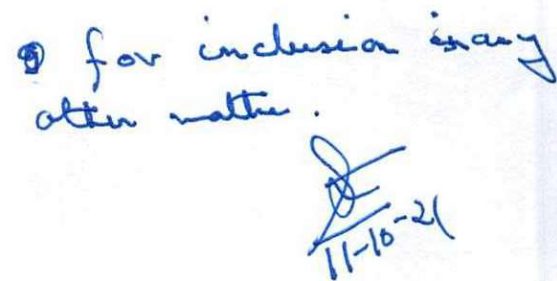 for inclusion in any
other matter.
11-10-21